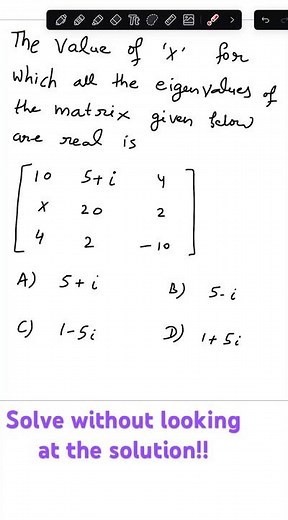 The value of 'x' for
which all the eigenvalues of
the matrix given below
are real is
10 5+i 4
x 20 2
4 2 -10
A) 5+i
B) 5-i
C) 1-5i
D) 1+5i
Solve without looking
at the solution!!